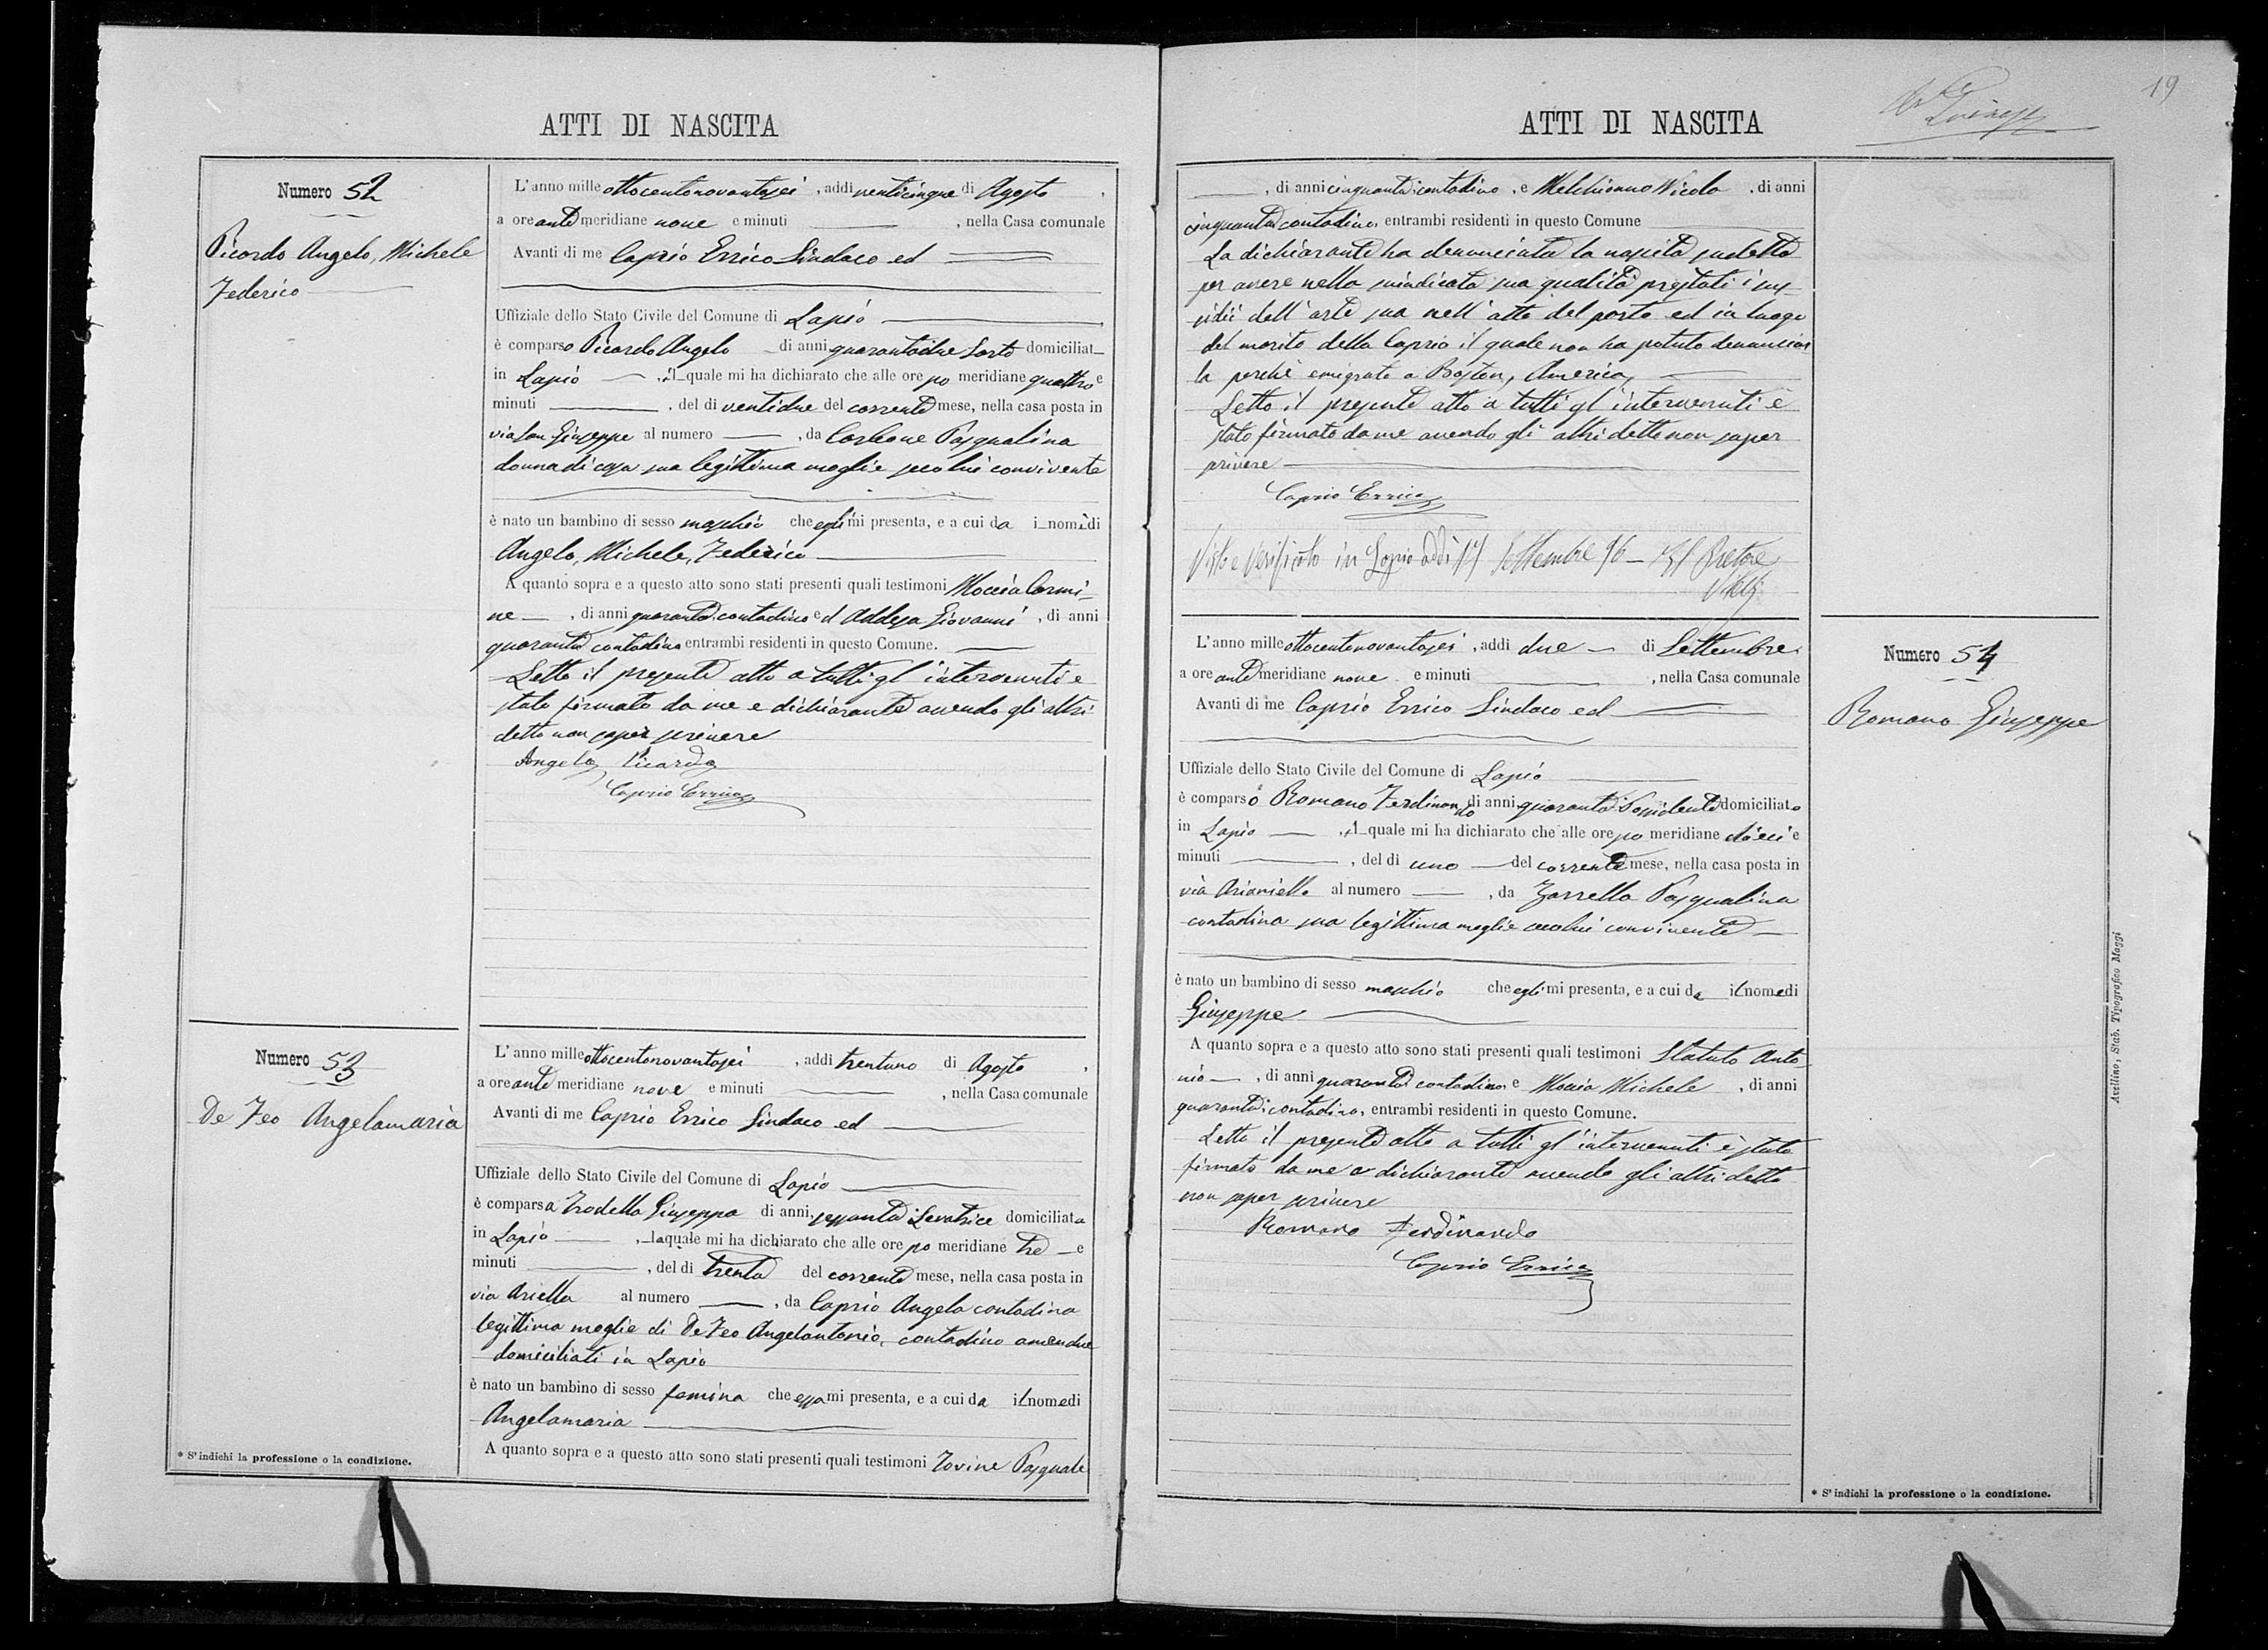 ATTI DI NASCITA
Numero 52
Picardo Angelo, Michele
Federico
L'anno mille ottocentonovantasei, addi venticinque di Agosto,
a ore ante meridiane nove e minuti, nella Casa comunale
Avanti di me Caprio Errico Sindaco ed
Uffiziale dello Stato Civile del Comune di Lapio
è comparso Picardo Angelo di anni quarantadue Sarto domiciliat
in Lapio, il quale mi ha dichiarato che alle ore po meridiane quattro e
minuti, del di ventidue del corrente mese, nella casa posta in
via San Giuseppe al numero, da Carbone Pasqualina
donna di casa sua legittima moglie seco lui convivente
è nato un bambino di sesso maschio che egli mi presenta, e a cui da i nomi di
Angelo, Michele, Federico
A quanto sopra e a questo atto sono stati presenti quali testimoni Moccia Carmi-
ne, di anni quaranta, contadino ed Addesa Giovanni, di anni
quaranta contadino entrambi residenti in questo Comune.
Letto il presente atto a tutti gl'intervenuti è
stato firmato da me e dichiarante avendo gli altri
detto non saper scrivere
Angelo Picardo
Caprio Errico
Numero 53
De Feo Angelamaria
L'anno mille ottocentonovantasei, addi trentuno di Agosto,
a ore ante meridiane nove e minuti, nella Casa comunale
Avanti di me Caprio Errico Sindaco ed
Uffiziale dello Stato Civile del Comune di Lapio
è comparsa Trodella Giuseppa di anni sessanta Levatrice domiciliata
in Lapio, la quale mi ha dichiarato che alle ore po meridiane tre e
minuti, del di trenta del corrente mese, nella casa posta in
via Ariella al numero, da Caprio Angela contadina
legittima moglie di De Feo Angelantonio, contadino amendue
domiciliati in Lapio
è nato un bambino di sesso femina che essa mi presenta, e a cui da il nome di
Angelamaria
A quanto sopra e a questo atto sono stati presenti quali testimoni Iovine Pasquale
* S'indichi la professione o la condizione.
19
ATTI DI NASCITA
, di anni cinquanta contadino, e Melchionno Nicola, di anni
cinquanta contadino, entrambi residenti in questo Comune
La dichiarante ha denunciata la nascita sudetta
per avere nella suindicata sua qualità prestati i sus-
sidii dell'arte sua nell'atto del parto ed in luogo
del marito della Caprio il quale non ha potuto denunciar
la perchè emigrato a Boston, America,
Letto il presente atto a tutti gl'intervenuti è
stato firmato da me avendo gli altri detto non saper
scrivere
Caprio Errico
Visto e Verificato in Lapio addì 17 Settembre 96 – Il Pretore
L'anno mille ottocentonovantasei, addi due di Settembre
a ore ante meridiane nove e minuti, nella Casa comunale
Avanti di me Caprio Errico Sindaco ed
Uffiziale dello Stato Civile del Comune di Lapio
è comparso Romano Ferdinando di anni quaranta Possidente domiciliato
in Lapio, il quale mi ha dichiarato che alle ore po meridiane dieci e
minuti, del di uno del corrente mese, nella casa posta in
via Arianiello al numero, da Zarrella Pasqualina
contadina sua legittima moglie seco lui convivente
è nato un bambino di sesso maschio che egli mi presenta, e a cui da il nome di
Giuseppe
A quanto sopra e a questo atto sono stati presenti quali testimoni Statuto Anto-
nio, di anni quaranta contadino e Moccia Michele, di anni
quaranta contadino, entrambi residenti in questo Comune.
Letto il presente atto a tutti gl'intervenuti è stato
firmato da me e dichiarante avendo gli altri detto
non saper scrivere
Romano Ferdinando
Caprio Errico
Numero 54
Romano Giuseppe
Avellino, Stab. Tipografico Maggi
* S'indichi la professione o la condizione.